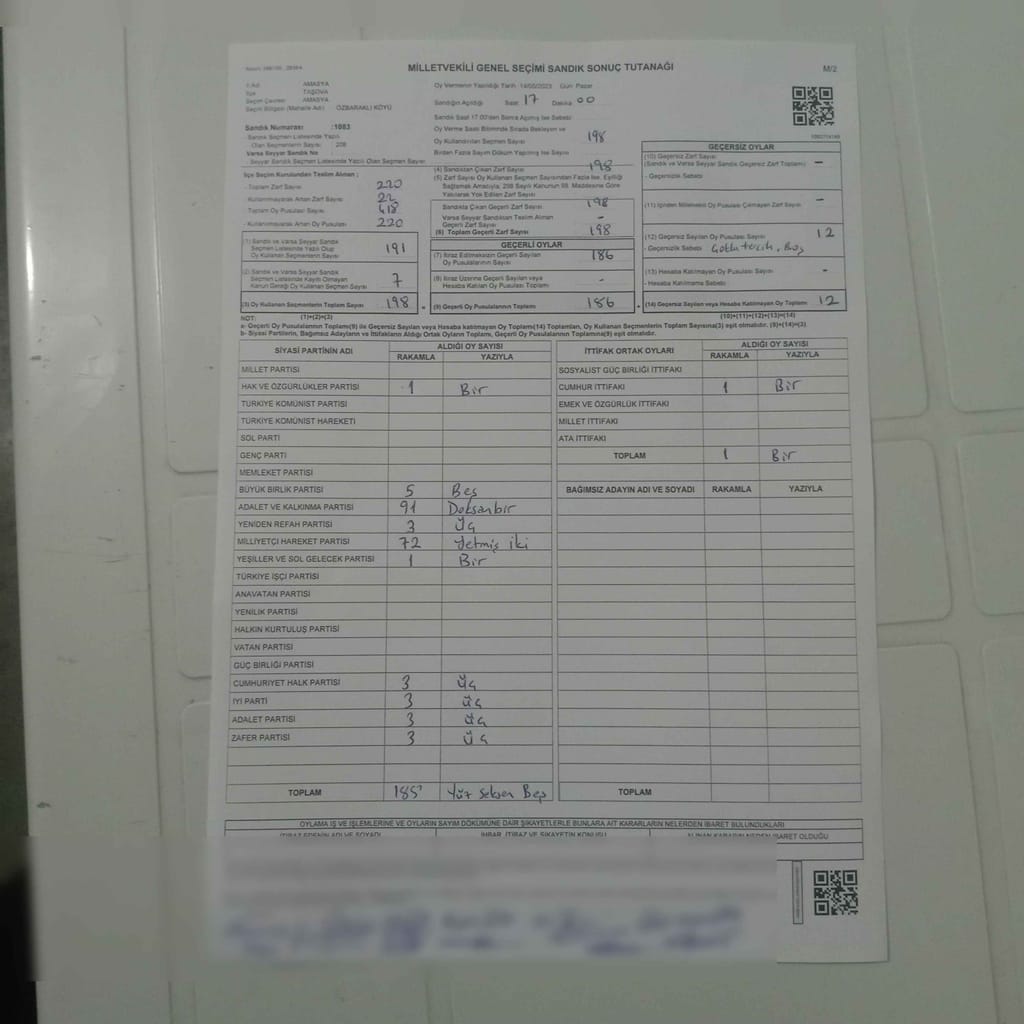 MİLLETVEKİLİ GENEL SEÇİMİ SANDIK SONUÇ TUTANAĞI
M/2
İl Adı : AMASYA
İlçe : TAŞOVA
Seçim Çevresi : AMASYA
Seçim Bölgesi (Mahalle Adı) : ÖZBARAKLI KÖYÜ
Sandık Numarası :1083
- Sandık Seçmen Listesinde Yazılı
Olan Seçmenlerin Sayısı : 208
Varsa Seyyar Sandık No
- Seyyar Sandık Seçmen Listesinde Yazılı Olan Seçmen Sayısı
İlçe Seçim Kurulundan Teslim Alınan ;
- Toplam Zarf Sayısı 220
- Kullanılmayarak Artan Zarf Sayısı 22
- Toplam Oy Pusulası Sayısı 418
- Kullanılmayarak Artan Oy Pusulası 220
(1) Sandık ve Varsa Seyyar Sandık
Seçmen Listesinde Yazılı Olup
Oy Kullanan Seçmenlerin Sayısı 191
(2) Sandık ve Varsa Seyyar Sandık
Seçmen Listesinde Kaydı Olmayan
Kanun Gereği Oy Kullanan Seçmen Sayısı 7
(3) Oy Kullanan Seçmenlerin Toplam Sayısı 198
(1)+(2)=(3)
Oy Vermenin Yapıldığı Tarih :14/05/2023 Gün: Pazar
Sandığın Açıldığı Saat: 17 Dakika: 00
Sandık Saat 17.00'den Sonra Açılmış İse Sebebi
Oy Verme Saati Bitiminde Sırada Bekleyen ve
Oy Kullandırılan Seçmen Sayısı 198
Birden Fazla Sayım Döküm Yapılmış İse Sayısı
(4) Sandıktan Çıkan Zarf Sayısı 198
(5) Zarf Sayısı Oy Kullanan Seçmen Sayısından Fazla İse, Eşitliği
Sağlamak Amacıyla; 298 Sayılı Kanunun 98. Maddesine Göre
Yakılarak Yok Edilen Zarf Sayısı
Sandıkta Çıkan Geçerli Zarf Sayısı 198
Varsa Seyyar Sandıktan Teslim Alınan
Geçerli Zarf Sayısı -
(6) Toplam Geçerli Zarf Sayısı 198
GEÇERLİ OYLAR
(7) İtiraz Edilmeksizin Geçerli Sayılan
Oy Pusulalarının Sayısı 186
(8) İtiraz Üzerine Geçerli Sayılan veya
Hesaba Katılan Oy Pusulası Toplamı -
(9) Geçerli Oy Pusulalarının Toplamı 186
GEÇERSİZ OYLAR
(10) Geçersiz Zarf Sayısı
(Sandık ve Varsa Seyyar Sandık Geçersiz Zarf Toplamı) -
- Geçersizlik Sebebi
(11) İçinden Milletvekili Oy Pusulası Çıkmayan Zarf Sayısı -
(12) Geçersiz Sayılan Oy Pusulası Sayısı 12
- Geçersizlik Sebebi Boş
(13) Hesaba Katılmayan Oy Pusulası Sayısı -
- Hesaba Katılmama Sebebi
(14) Geçersiz Sayılan veya Hesaba Katılmayan Oy Toplamı 12
(10)+(11)+(12)+(13)=(14)
NOT:
a- Geçerli Oy Pusulaları Toplamı(9) ile Geçersiz Sayılan veya Hesaba katılmayan Oy Toplamı(14) Toplamları, Oy Kullanan Seçmenlerin Toplam Sayısına(3) eşit olmalıdır. (9)+(14)=(3)
b- Siyasi Partilerin, Bağımsız Adayların ve İttifakların Aldığı Ortak Oyların Toplamı, Geçerli Oy Pusulalarının Toplamına(9) eşit olmalıdır.
SİYASİ PARTİNİN ADI ALDIĞI OY SAYISI
RAKAMLA YAZIYLA
MİLLET PARTİSİ
HAK VE ÖZGÜRLÜKLER PARTİSİ 1 Bir
TÜRKİYE KOMÜNİST PARTİSİ
TÜRKİYE KOMÜNİST HAREKETİ
SOL PARTİ
GENÇ PARTİ
MEMLEKET PARTİSİ
BÜYÜK BİRLİK PARTİSİ 5 Beş
ADALET VE KALKINMA PARTİSİ 91 Doksanbir
YENİDEN REFAH PARTİSİ 3 Üç
MİLLİYETÇİ HAREKET PARTİSİ 72 Yetmiş iki
YEŞİLLER VE SOL GELECEK PARTİSİ 1 Bir
TÜRKİYE İŞÇİ PARTİSİ
ANAVATAN PARTİSİ
YENİLİK PARTİSİ
HALKIN KURTULUŞ PARTİSİ
VATAN PARTİSİ
GÜÇ BİRLİĞİ PARTİSİ
CUMHURİYET HALK PARTİSİ 3 üç
İYİ PARTİ 3 üç
ADALET PARTİSİ 3 üç
ZAFER PARTİSİ 3 üç
TOPLAM 185 Yüz Seksen Beş
İTTİFAK ORTAK OYLARI ALDIĞI OY SAYISI
RAKAMLA YAZIYLA
SOSYALİST GÜÇ BİRLİĞİ İTTİFAKI
CUMHUR İTTİFAKI 1 Bir
EMEK VE ÖZGÜRLÜK İTTİFAKI
MİLLET İTTİFAKI
ATA İTTİFAKI
TOPLAM 1 Bir
BAĞIMSIZ ADAYIN ADI VE SOYADI RAKAMLA YAZIYLA
TOPLAM
OYLAMA İŞ VE İŞLEMLERİNE VE OYLARIN SAYIM DÖKÜMÜNE DAİR ŞİKAYETLERLE BUNLARA AİT KARARLARIN NELERDEN İBARET BULUNDUKLARI
İTİRAZ EDENİN ADI VE SOYADI İHBAR, İTİRAZ VE ŞİKAYETİN KONUSU ALINAN KARARIN NEDEN İBARET OLDUĞU